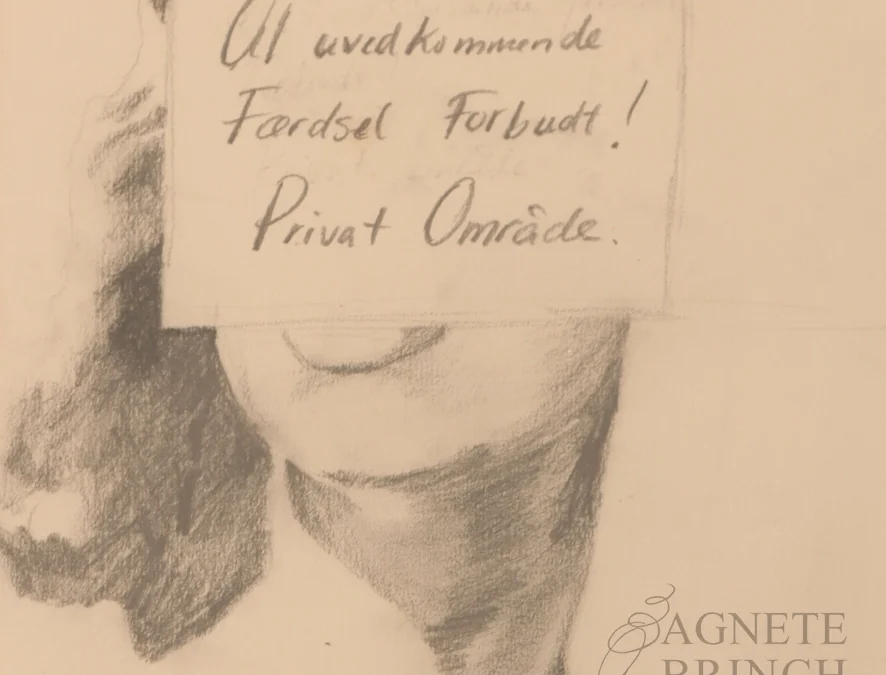 Al uvedkommende
Færdsel Forbudt!
Privat Område.
AGNETE
BRINCH